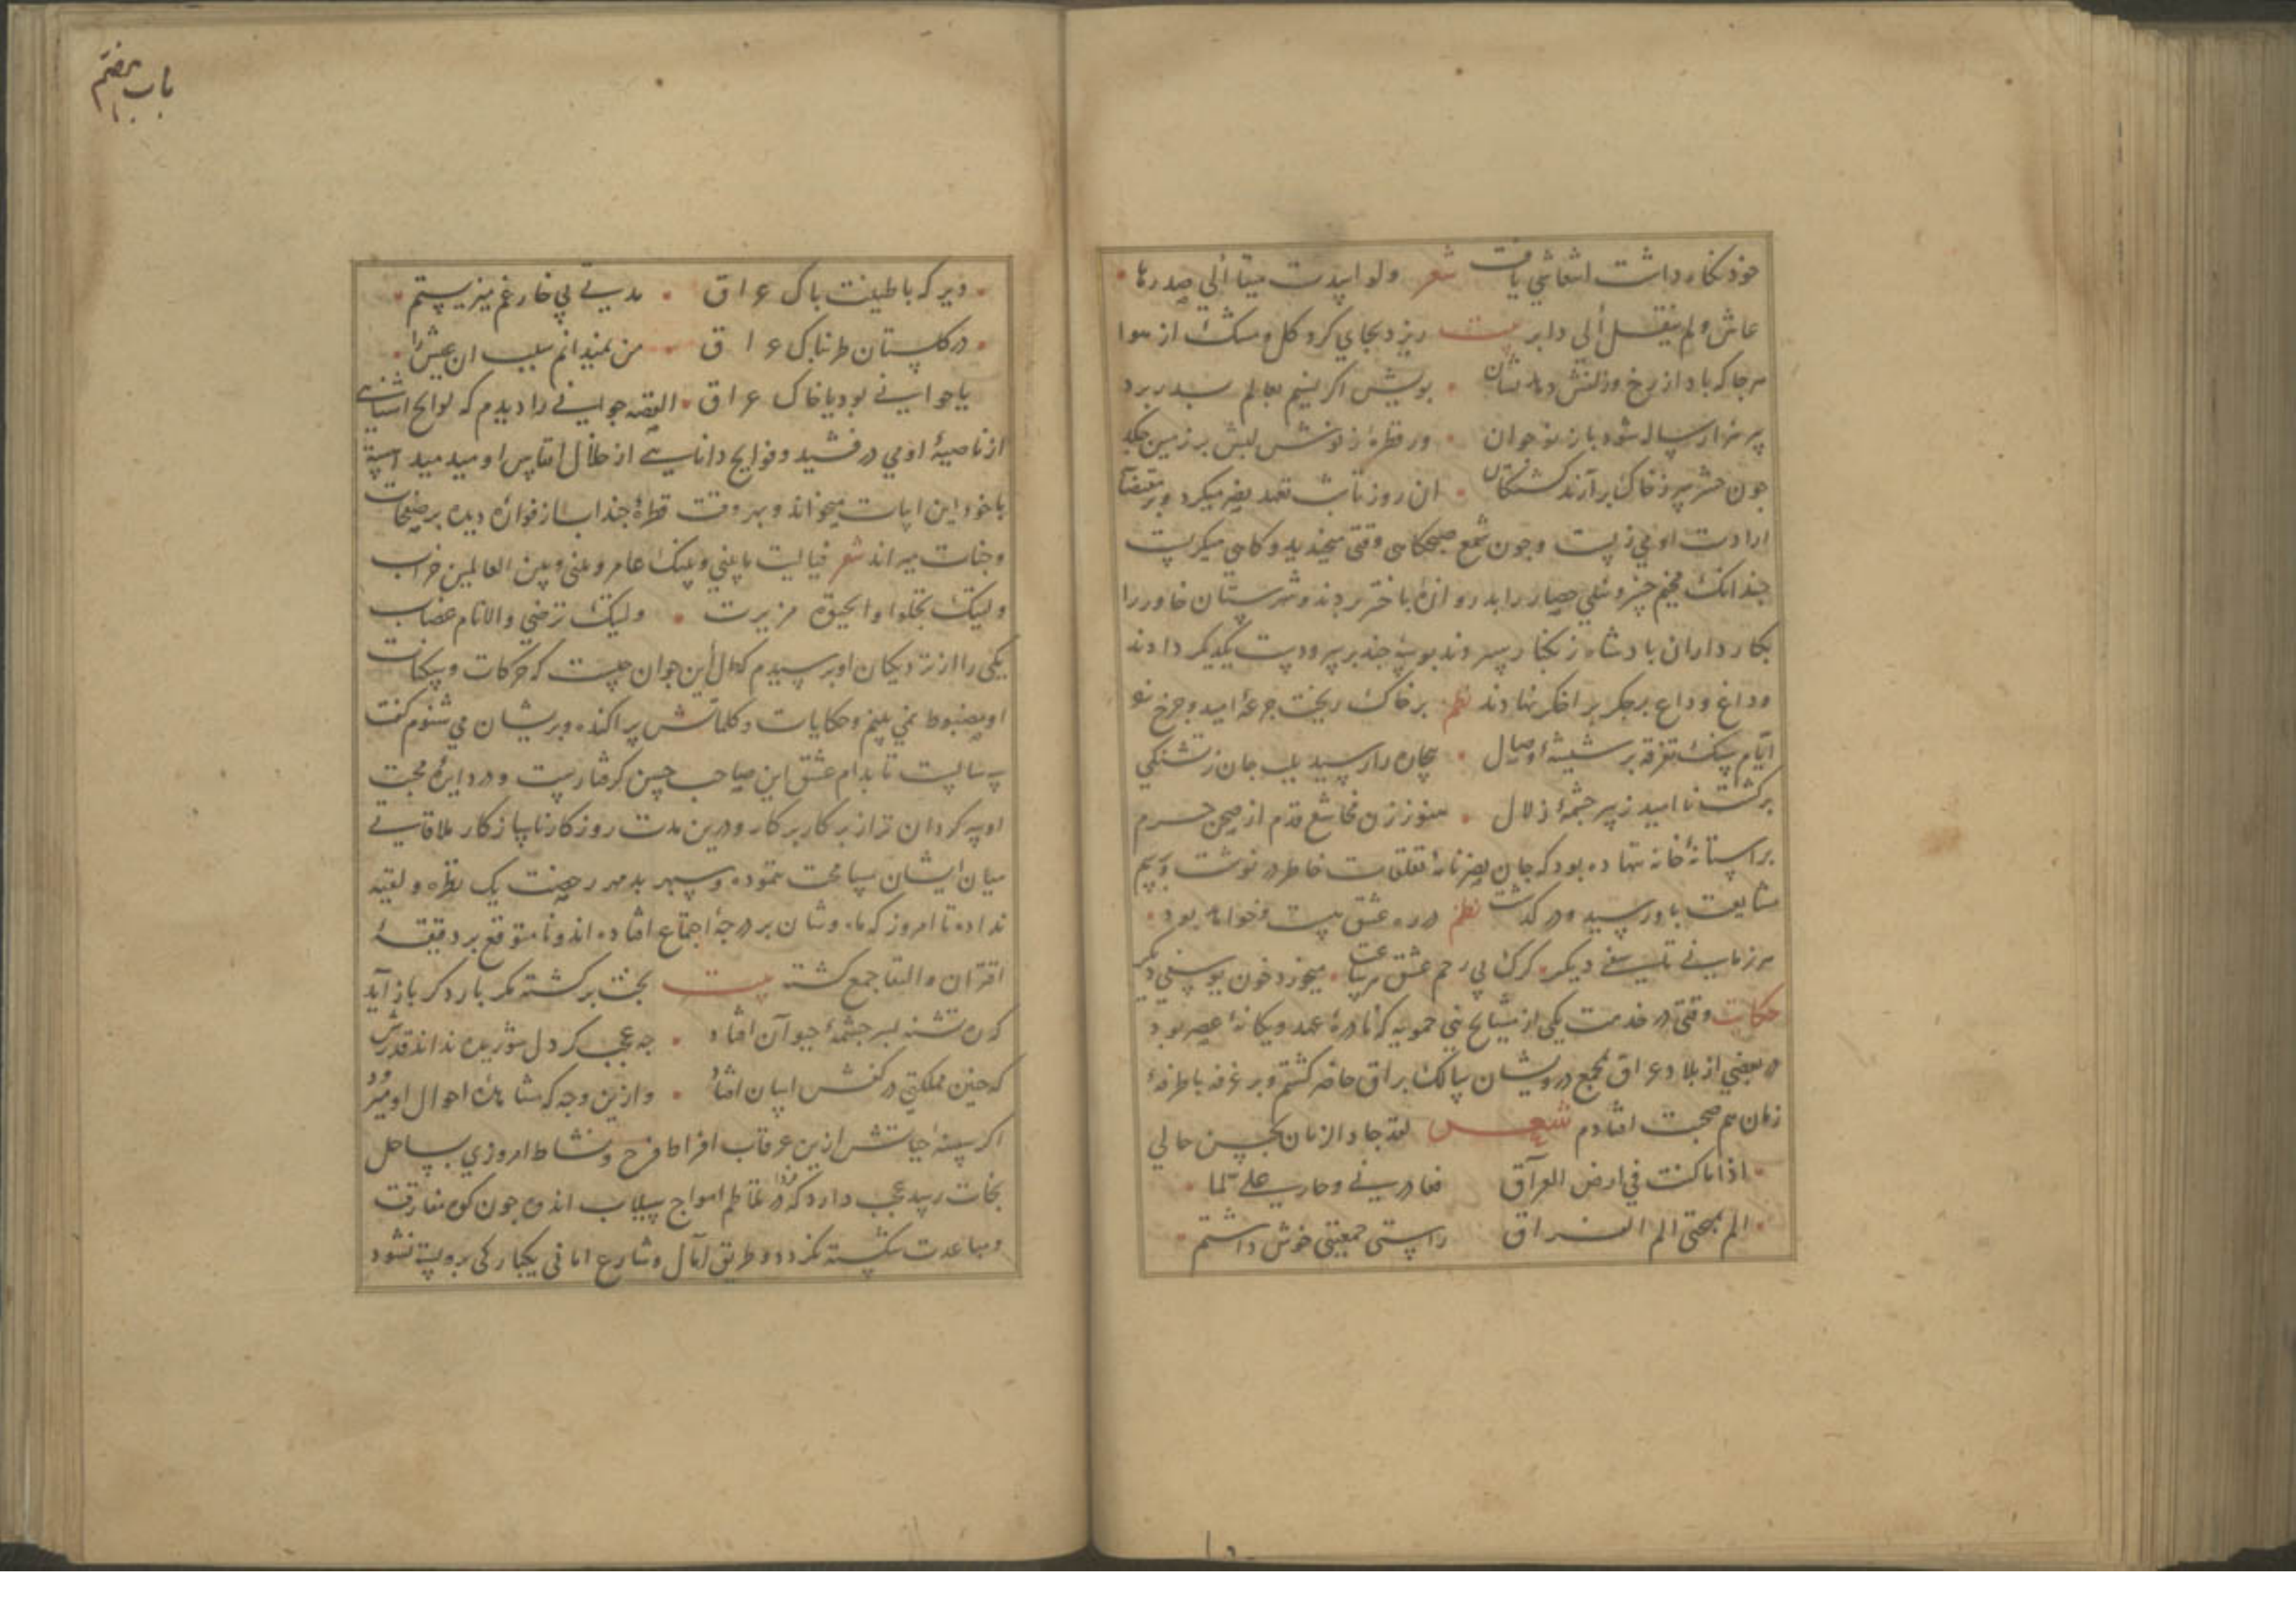 خود نکاه داشت انتعاشی یافت شعر ولو اسندت میتا الی صدرها
عاش ولم ینقل الی دابر بیت ریزد بجای کرد کل و مشک از هوا
هرجا که باد از رخ و زلفش دهد نشان بویش اکر نسیم بعالم سبدر برد
پیر هزار ساله شود باز نوجوان ور قطرهٔ ز نوش لبش بر زمین چکد
جون حشر سر ز خاک برآرند کشتکان ان روز تا شب تعهد میکرد و بر مقتضای
ارادت او می زیست وجون شمع صبحکاهی وقتی میخندید و کاهی میکریست
جندانک خسرو را بدروازهٔ باختر بردند و شهرستان خاور را
بکار داران بادشاه زنکبار سپردند بوسهٔ جند بر سر و دست یکدیکر دادند
و داغ وداع بر جکر بر اخکر نهادند نظم بر خاک ریخت جرعهٔ امید و جرخ نو
ایام سنک تفرقه بر شیشهٔ وصال بیجاره را رسید بلب جان ز تشنکی
برکشت نا امید ز سر جشمهٔ زلال هنوز زن قدم از صحن حرم
بر استانهٔ خانه ننهاده بود که جان تعلقات خاطر در نوشت و رسم
مشایعت باو رسید و در کذشت نظم در ره عشق هست خوانه بود
هر زمانی تاسفی دیکر کرک بی رحم عشق هر ساعت میخورد خون یوسفی دیکر
حکایت وقتی در خدمت یکی از مشایخ بنی حمویه که نادرهٔ عهد و یکانهٔ عصر بود
در بعضی از بلاد عراق بمجمع درویشان حاضر کشتم و بر غرفه با طرفهٔ
زمان هم صحبت افتادم شعر لقد جاد الزمان بحسن حالی
اذا ما کنت فی ارض العراق فغادرنی و حارب علی لما
الم بمهجتی الم الفراق راستی جمعیتی خوش داشتم
باب هفتم
دیر که با طینت باک عراق مدتی بی خار غم میزیستم
در کلستان طربناک عراق من نمیدانم سبب ان عیش را
یا جوانی بود یا خاک عراق القصه جوانی را دیدم که لوایح اشنایی
از ناصیهٔ او می درفشید و فوایح دانایی از خلال انفاس او میدمید اهسته
با خود این ابیات میخواند و بهر وقت قطرهٔ جند اب از فوارهٔ دیده بر صفحات
وجنات میراند شعر فیا لیت ما بینی و بینک عامر و بینی و بین العالمین خراب
ولیتک تحلوا والحیوة مریرت ولیتک ترضی والانام غضاب
یکی را از نزدیکان او برسیدم که حال این جوان جیست که حرکات و سکنات
او مضبوط نمی بینم و حکایات و کلماتش پراکنده و بریشان می شنوم کفت
تا بدام عشق این صاحب حسن کرفتارست و در دایرهٔ محبت
او سر کردان تر از برکار و درین مدت روزکار ناسازکار ملاقاتی
میان ایشان مسامحت ننموده و سپهر بدمهر رخصت یک نظره و لقیه
نداده تا امروز که ماه وشان بر درجهٔ اجتماع افتاده اند و نا متوقع بر دقیقهٔ
اقتران و التقا جمع کشته بیت بخت برکشته مکر بار دکر باز آید
که ره تشنه بسر جشمهٔ حیوان افتاد جه عجب کر دل شوریده نداند قدرش
که جنین مملکتی در کفش اسان افتاد و ازین وجه که مشاهدهٔ احوال او میرود
اکر سفینهٔ حیاتش ازین غرقاب افراط فرح و نشاط امروزی بساحل
نجات رسد عجب دارد که فردا در تلاطم امواج سیلاب اندوه جون کوه مفارقت
و مباعدت شکسته نکردد و طریق آمال و شارع امانی یکبارکی برو بسته نشود